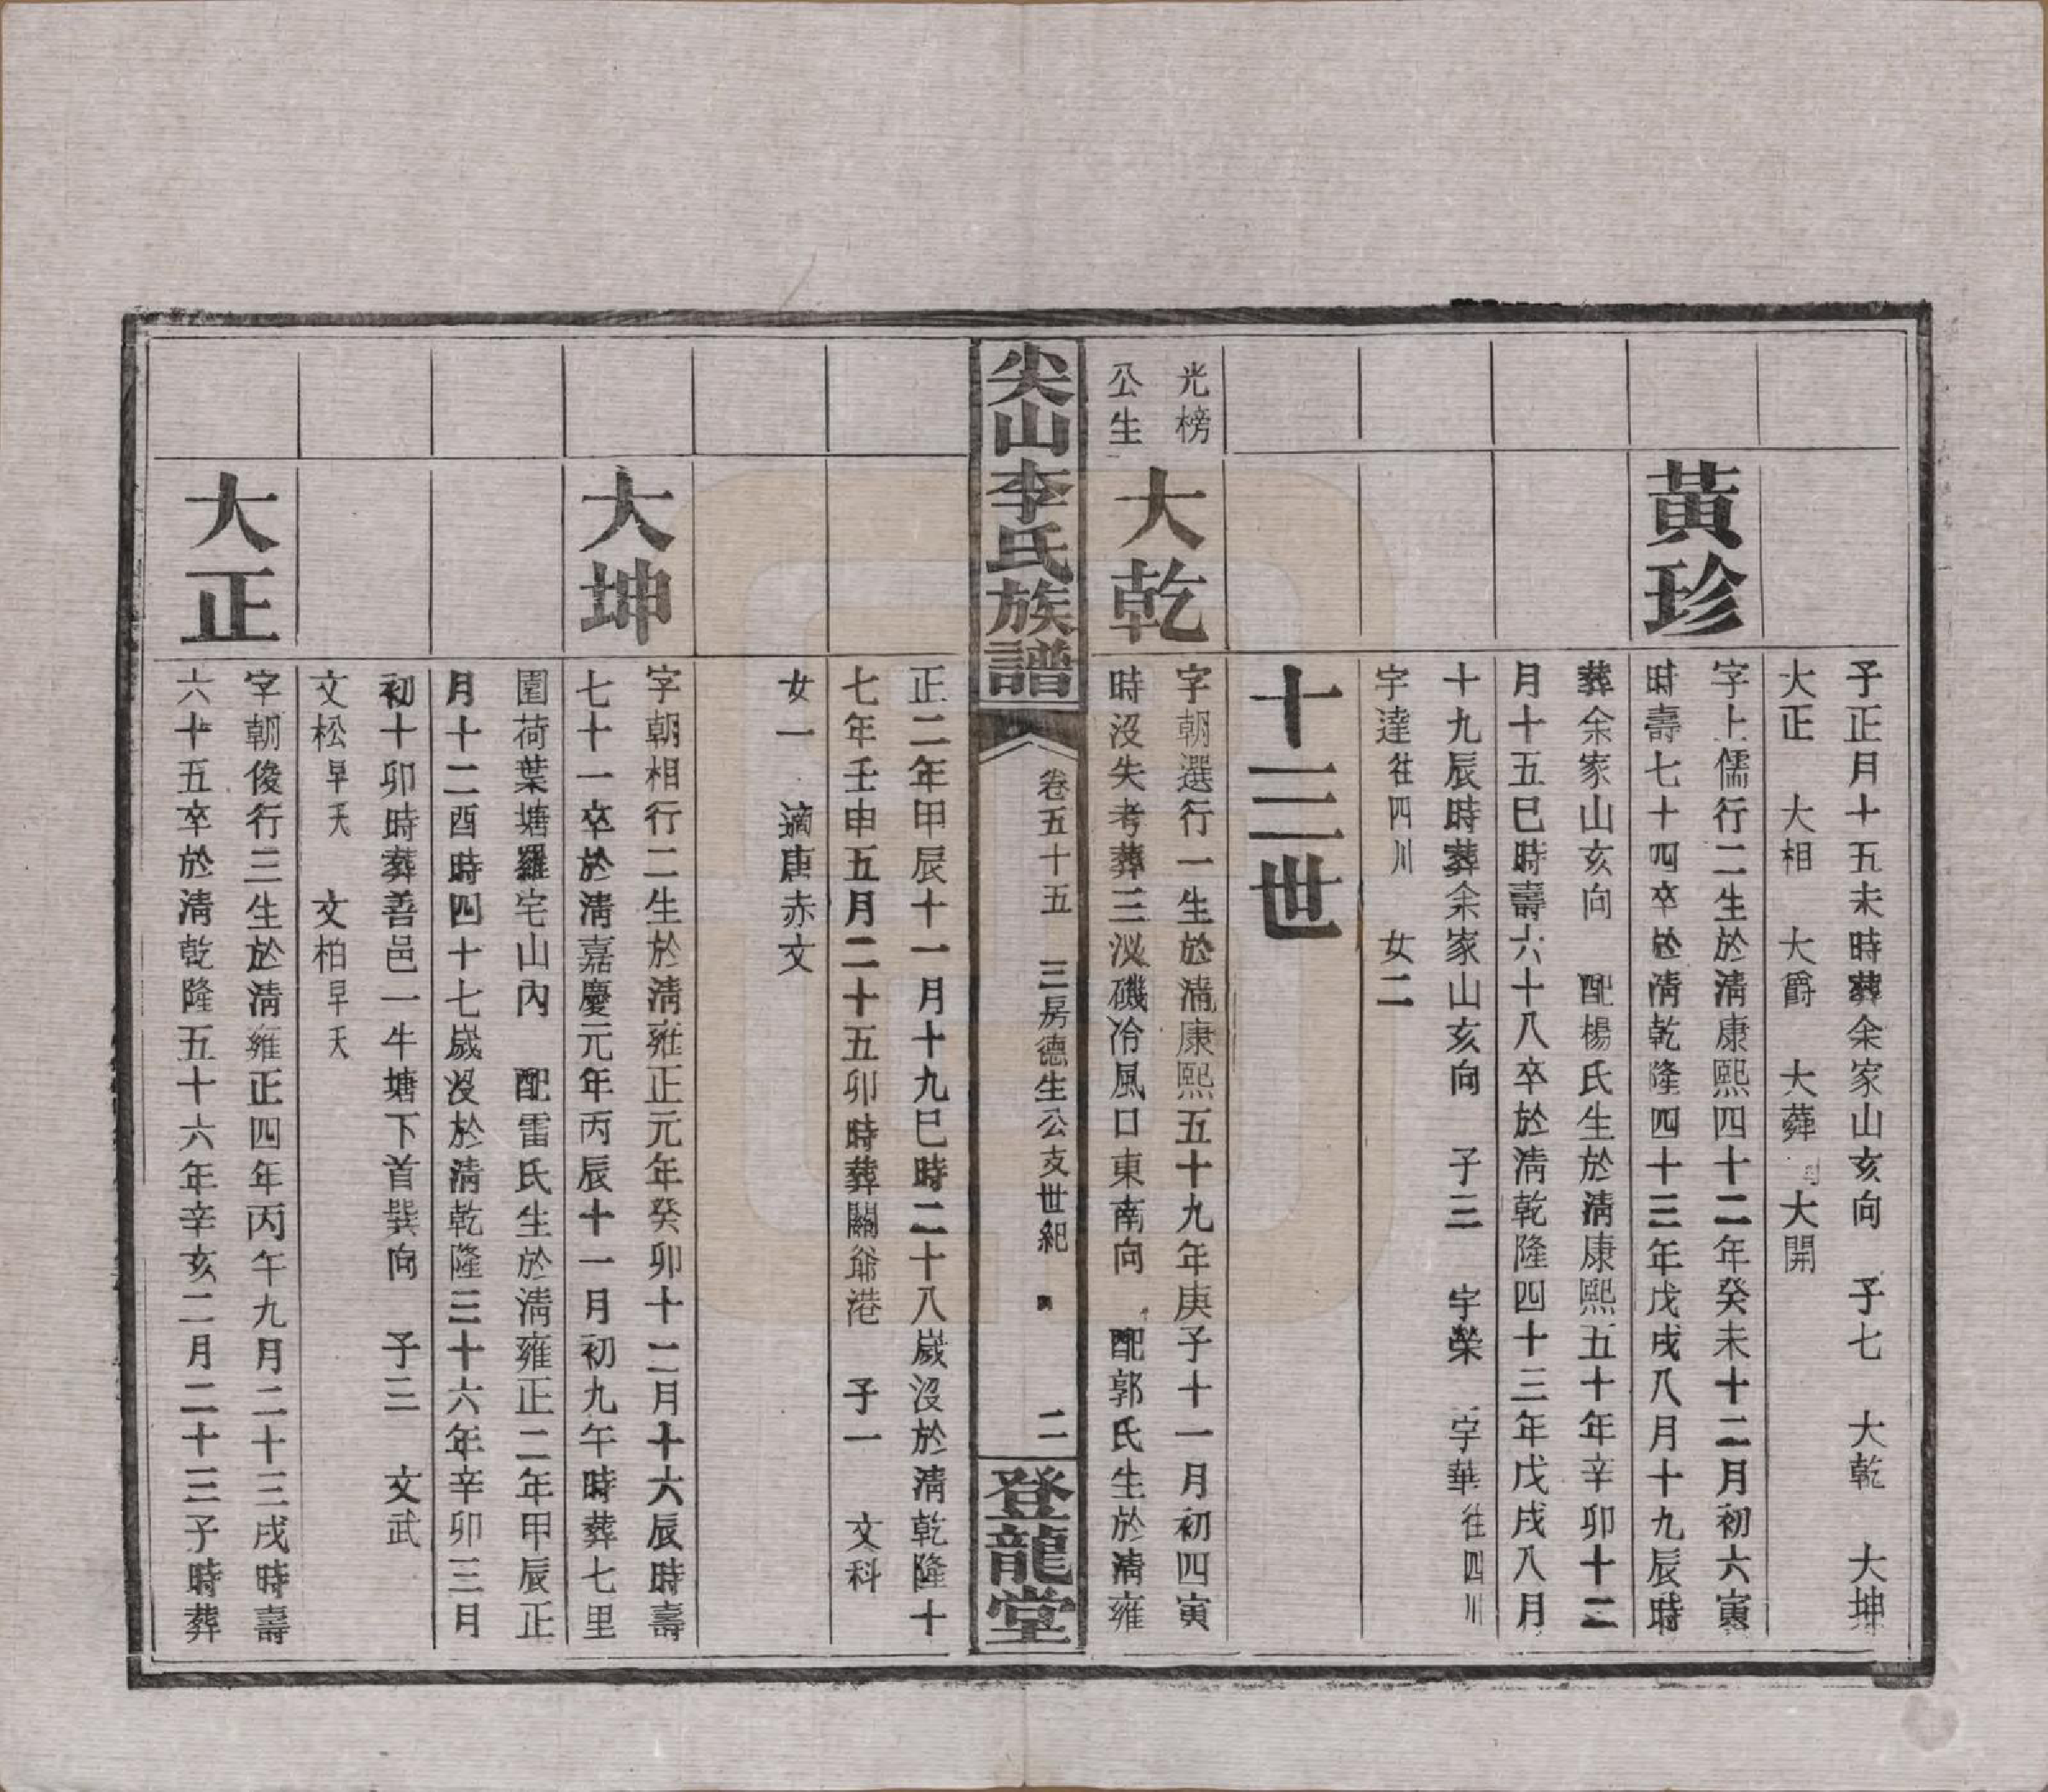 子正月十五未時葬余家山亥向　子七　大乾　大坤
大正　大相　大爵　大葬　大開
黃珍
字上儒行二生於淸康熙四十二年癸未十二月初六寅
時壽七十四卒於淸乾隆四十三年戊戌八月十九辰時
葬余家山亥向　配楊氏生於淸康熙五十年辛卯十二
月十五巳時壽六十八卒於淸乾隆四十三年戊戌八月
十九辰時葬余家山亥向　子三　字榮　字華往四川
字達往四川　女二
十三世
光榜
公生
大乾
字朝選行一生於淸康熙五十九年庚子十一月初四寅
時沒失考葬三泌磯冷風口東南向　配郭氏生於淸雍
尖山李氏族譜
卷五十五　三房德生公支世紀
二
登龍堂
正二年甲辰十一月十九巳時二十八歲沒於淸乾隆十
七年壬申五月二十五卯時葬關爺港　子一　文科
女一　適唐赤文
大坤
字朝相行二生於淸雍正元年癸卯十二月十六辰時壽
七十一卒於淸嘉慶元年丙辰十一月初九午時葬七里
園荷葉塘羅宅山內　配雷氏生於淸雍正二年甲辰正
月十二酉時四十七歲沒於淸乾隆三十六年辛卯三月
初十卯時葬善邑一牛塘下首巽向　子三　文武
文松早夭　文柏早夭
大正
字朝俊行三生於淸雍正四年丙午九月二十三戌時壽
六十五卒於淸乾隆五十六年辛亥二月二十三子時葬